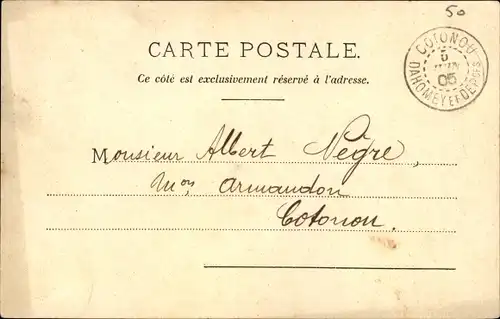 50
COTONOU
5
05
DAHOMEY ET DÉPCES
CARTE POSTALE.
Ce côté est exclusivement réservé à l'adresse.
Monsieur Albert Nègre,
Mon Armandon
Cotonou.